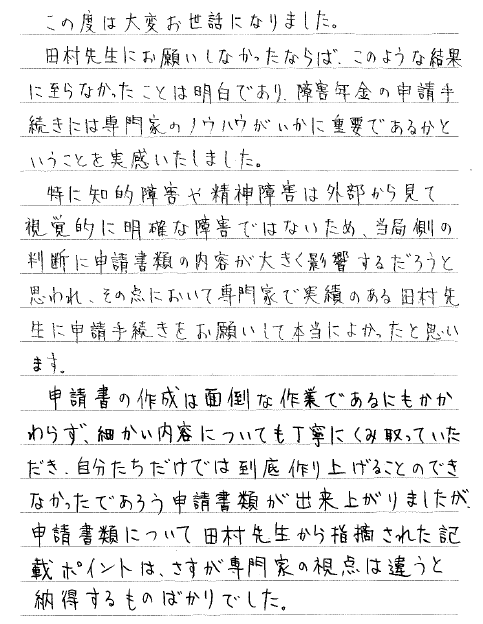 この度は大変お世話になりました。
田村先生にお願いしなかったならば、このような結果
に至らなかったことは明白であり、障害年金の申請手
続きには専門家のノウハウがいかに重要であるかと
いうことを実感いたしました。
特に知的障害や精神障害は外部から見て
視覚的に明確な障害ではないため、当局側の
判断に申請書類の内容が大きく影響するだろうと
思われ、その点において専門家で実績のある田村先
生に申請手続きをお願いして本当によかったと思い
ます。
申請書の作成は面倒な作業であるにもかか
わらず、細かい内容についても丁寧にくみ取っていた
だき、自分たちだけでは到底作り上げることのでき
なかったであろう申請書類が出来上がりましたが、
申請書類について田村先生から指摘された記
載ポイントは、さすが専門家の視点は違うと
納得するものばかりでした。